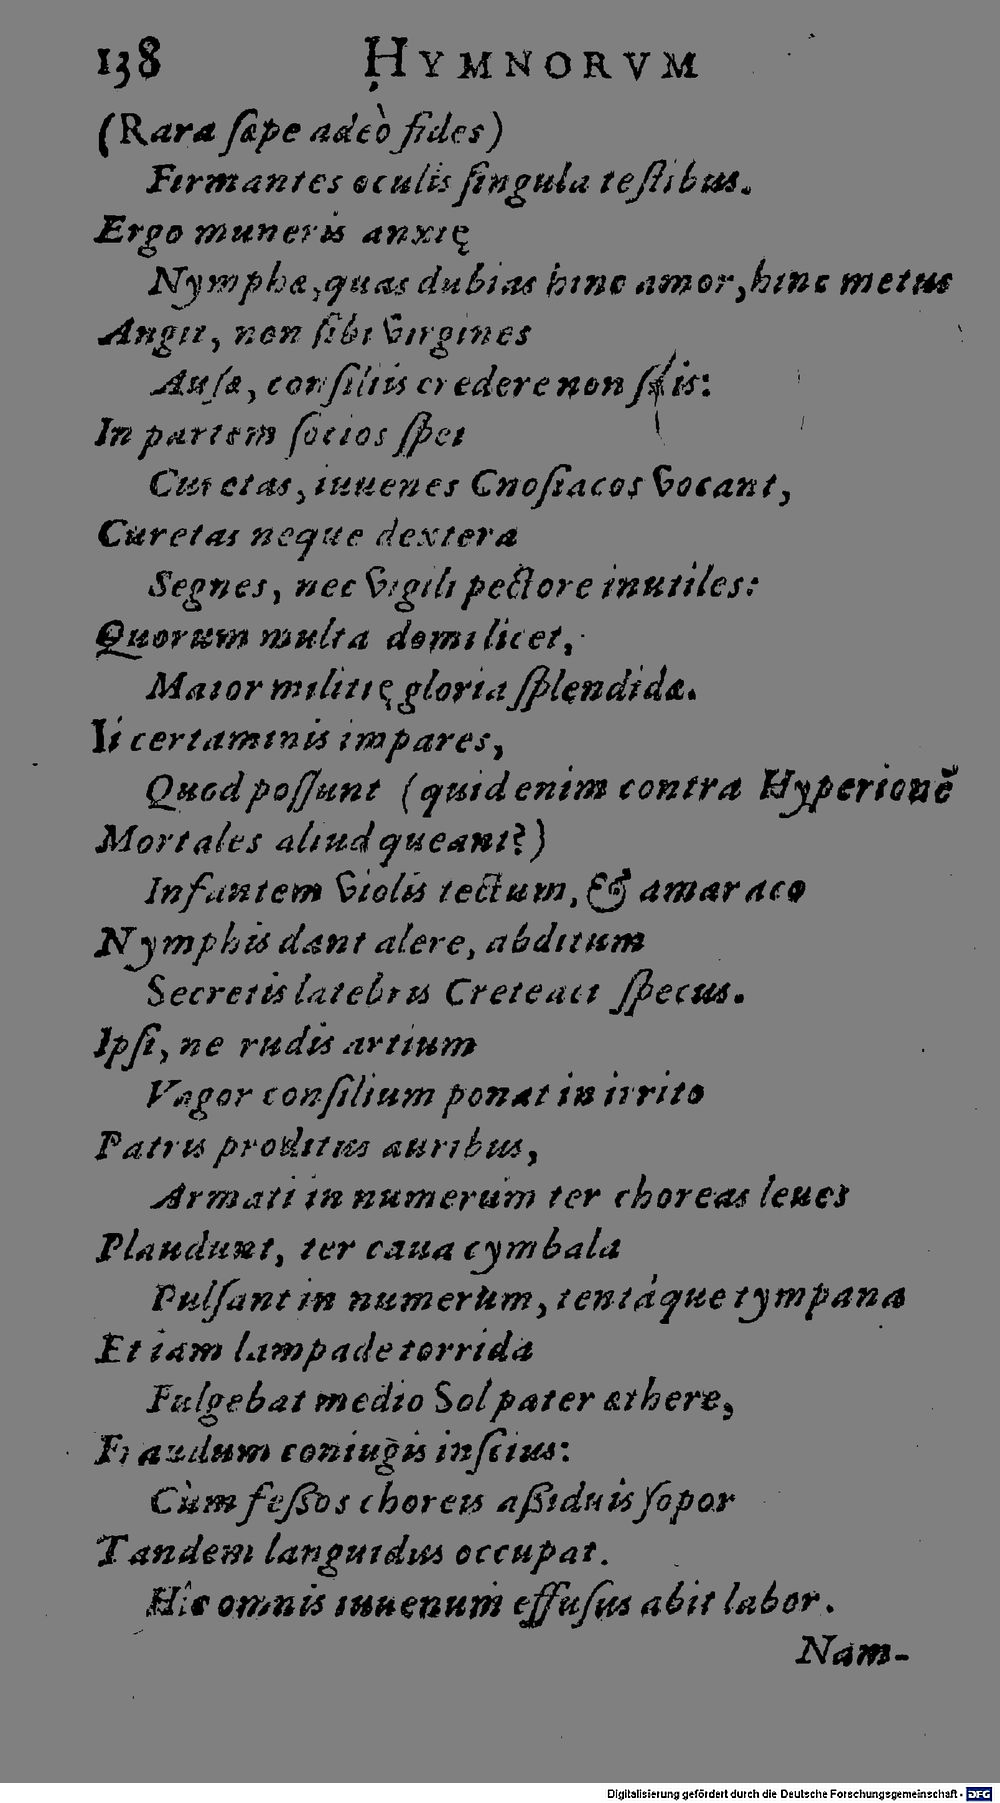 138 HYMNORVM
(Rara sæpe adeò fides)
Firmantes oculis singula testibus.
Ergo muneris anxię
Nymphæ, quas dubias hinc amor, hinc metus
Angit, non sibi virgines
Ausæ, consiliis credere non suis:
In partem socios spei
Curetas, iuuenes Cnosiacos vocant,
Curetas neque dextera
Segnes, nec vigili pectore inutiles:
Quorum multa domi licet,
Maior militię gloria splendidæ.
Ii certaminis impares,
Quod possunt (quid enim contra Hyperionē
Mortales aliud queant?)
Infantem violis tectum, & amaraco
Nymphis dant alere, abditum
Secretis latebris Creteaci specus.
Ipsi, ne rudis artium
Vagor consilium ponat in irrito
Patris proditus auribus,
Armati in numerum ter choreas leues
Plaudunt, ter caua cymbala
Pulsant in numerum, tentáque tympana
Et iam lampade torrida
Fulgebat medio Sol pater æthere,
Fraudum coniugis inscius:
Cùm fessos choreis assiduis sopor
Tandem languidus occupat.
Hîc omnis iuuenum effusus abit labor.
Nam-
Digitalisierung gefördert durch die Deutsche Forschungsgemeinschaft - DFG